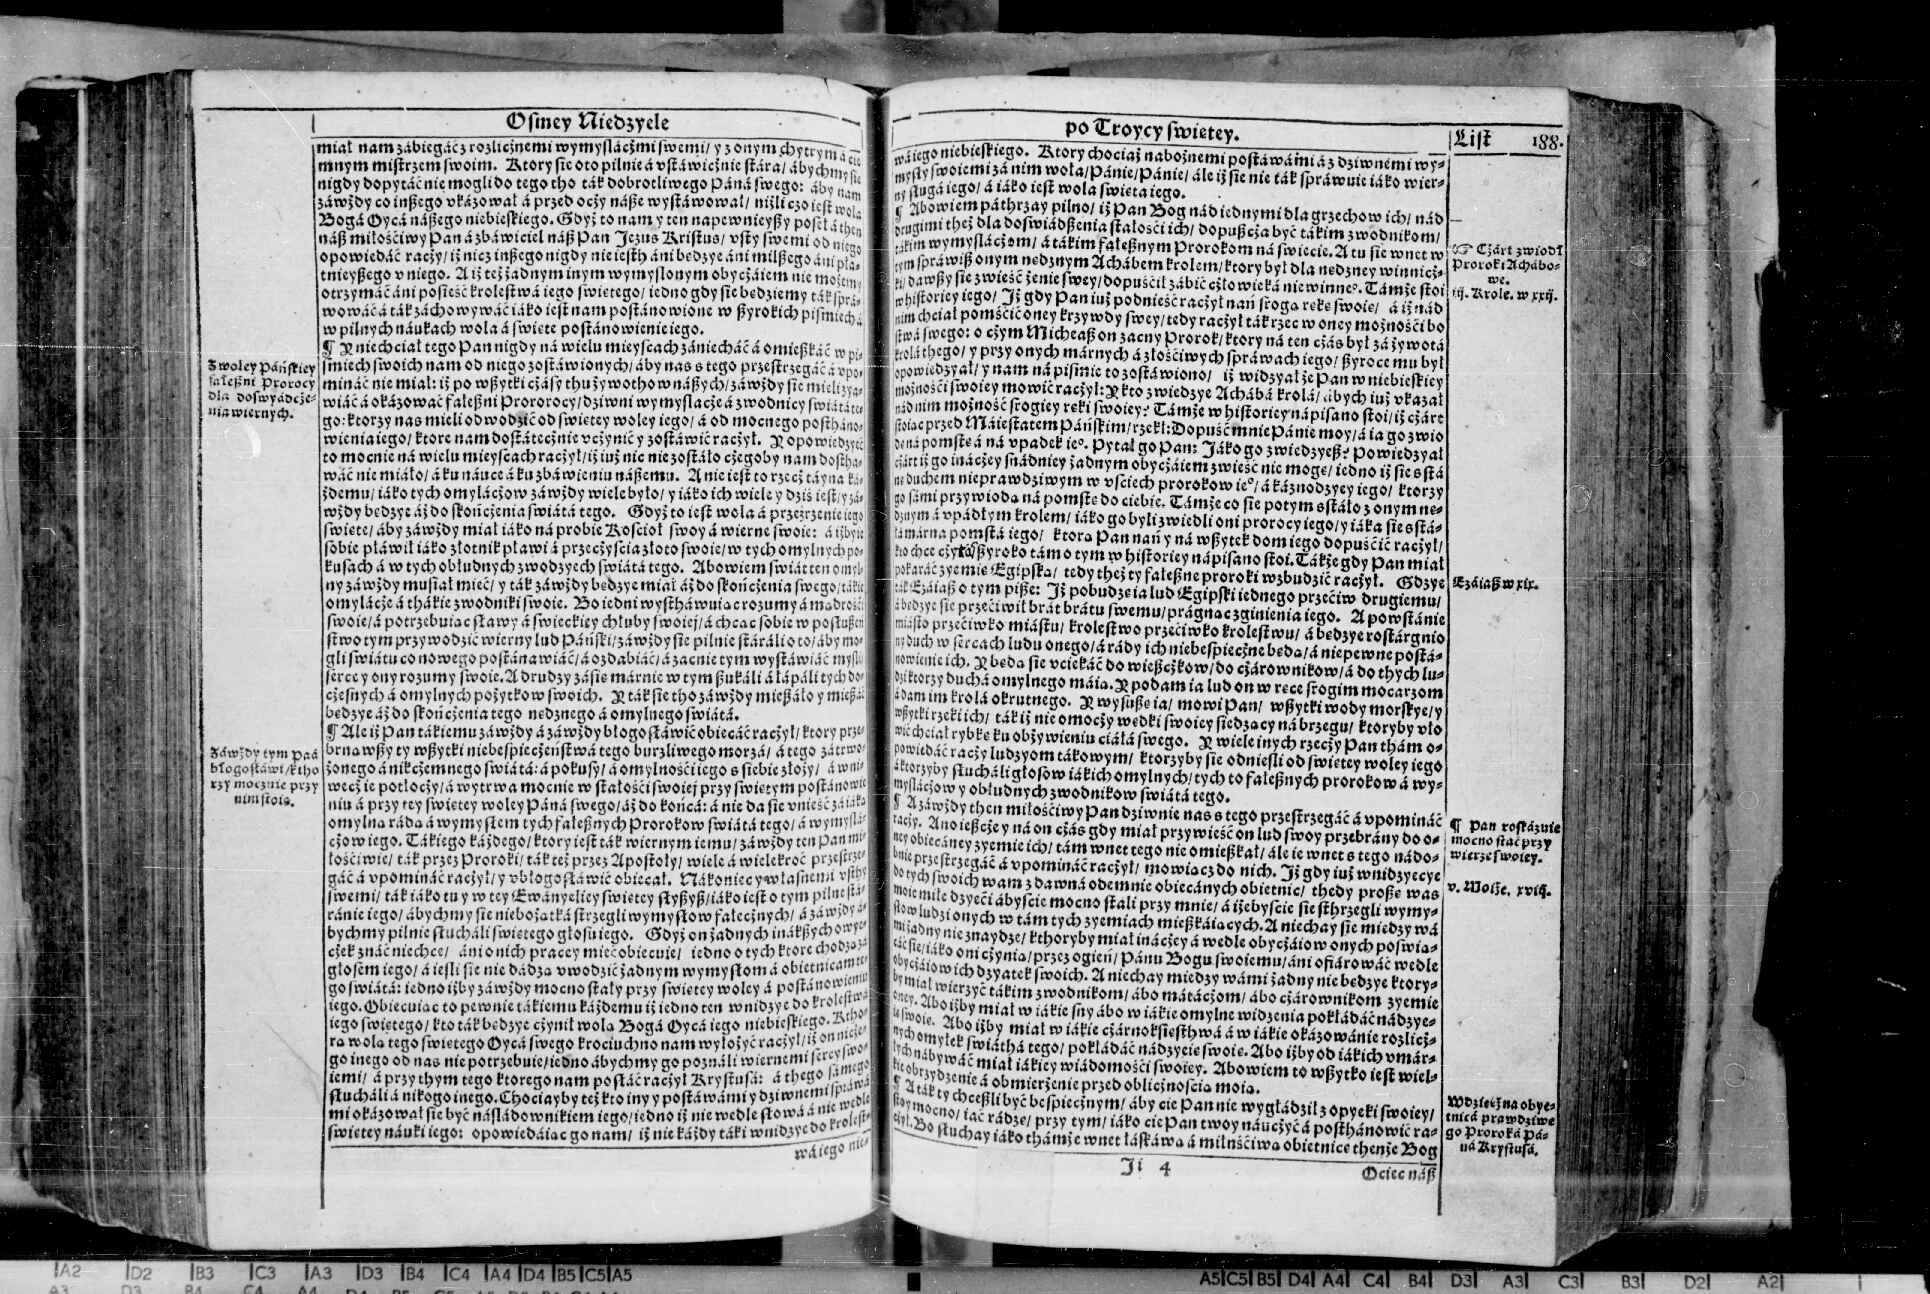 Osmey Niedzyele
miał nam zábiegáć z rozlicżnemi wymyslácżmi swemi/ y z onym chytrym á
mnym mistrzem swoim. Ktory sie oto pilnie á vstáwicżnie stára/ ábychmy sie
nigdy dopytáć nie mogli do tego tho ták dobrotliwego Páná swego: áby nam
záwżdy co inßego vkázował á przed ocży náße wystáwował/ niżli czo iest wola
Bogá Oycá náßego niebieskiego. Gdyż to nam y ten napewnieyßy poseł á then
náß miłościwy Pan á zbáwiciel náß Pan Jezus Kristus/ vsty swemi od niego
opowiedáć racży/ iż nicz inßego nigdy nie iesth áni bedzye áni milßego áni płá-
tnieyßego v niego. A iż też żadnym inym wymyslonym obycżáiem nie możemy
otrzymáć áni posieść krolestwá iego swietego/ iedno gdy sie bedziemy ták sprá-
wowáć á ták záchowywáć iáko iest nam postánowione w ßyrokich pismiech á
w pilnych náukach wola á swiete postánowienie iego.
¶ Y niechciał tego Pan nigdy ná wielu mieyscach zániecháć á omießkáć w pi-
smiech swoich nam od niego zostáwionych/ áby nas s tego przestrzegáć á vpo-
mináć nie miał: iż po wßytki cżásy thu żywothow náßych/ záwżdy sie mieli zyá-
wiáć á okázowáć faleßni Prororocy/ dziwni wymyslacże á zwodnicy swiátá te-
go: ktorzy nas mieli odwodzić od swietey woley iego/ á od mocnego posthано-
wienia iego/ ktore nam dostátecżnie vcżynić y zostáwić racżył. Y opowiedzyeć
to mocnie ná wielu mieyscach racżył/ iż iuż nic nie zostáło cżegoby nam dosthá-
wáć nie miáło/ á ku náuce á ku zbáwieniu náßemu. A nie iest to rzecż táyna ká-
żdemu/ iáko tych omylácżow záwżdy wiele było/ y iáko ich wiele y dziś iest/ y zá-
wżdy bedzye áż do skońcżenia swiátá tego. Gdyż to iest wola á przeźrzenie iego
swiete/ áby záwżdy miał iáko ná probie Kościoł swoy á wierne swoie: á iżby ie
sobie płáwił iáko złotnik płáwi á przecżyścia złoto swoie/ w tych omylnych po-
kusach á w tych obłudnych zwodzyech swiátá tego. Abowiem swiát ten omyl-
ny záwżdy musiał mieć/ y ták záwżdy bedzye miał áż do skońcżenia swego/ tákie
omylácże á thákie zwodniki swoie. Bo iedni wysthawuiac rozumy á madrości
swoie/ á potrzebuiac sławy á swieckiey chluby swoiey/ á chcac sobie w posłußeń
stwo tym przywodzić wierny lud Páński/ záwżdy sie pilnie stáráli o to/ áby mo-
gli swiátu co nowego postánawiáć/ á ozdabiáć/ á zacnie tym wystáwiáć mysli
serce y ony rozumy swoie. A drudzy zásie márnie w tym ßukáli á łápáli tych do-
cżesnych á omylnych pożytkow swoich. Y ták sie tho záwżdy mießáło y mießáć
bedzye áż do skońcżenia tego nedznego á omylnego swiátá.
¶ Ale iż Pan tákiemu záwżdy á záwżdy błogosłáwić obiecáć racżył/ ktory prze-
brnawßy ty wßytki niebespiecżeństwá tego burzliwego morzá/ á tego zátrwo-
żonego á nikcżemnego swiátá: á pokusy/ á omylności iego s siebie złoży/ á wni-
wecż ie potłocży/ á wytrwa mocnie w stáłości swoiey przy swietym postánowie
niu á przy tey swietey woley Páná swego/ áż do końcá: á nie da sie vnieść zá iáka
omylna ráda á wymysłem tych faleßnych Prorokow swiátá tego/ á wymyslá-
cżow iego. Tákiego każdego/ ktory iest ták wiernym iemu/ záwżdy ten Pan mi-
łościwie/ ták przez Proroki/ ták też przez Apostoły/ wiele á wielekroć przestrze-
gáć á vpomináć racżył/ y vbłogosłáwić obiecał. Nákoniec y własnemi vsthy
swemi/ ták iáko tu y w tey Ewányeliey swietey słyßyß/ iáko iest o tym pilne stá-
ránie iego/ ábychmy sie niebożatká strzegli wymysłow falecżnych/ á záwżdy á-
bychmy pilnie słucháli swietego głosu iego. Gdyż on żadnych inákßych owye-
cżek znáć niechce/ áni o nich pracey mieć obiecuie/ iedno o tych ktore chodza zá
głosem iego/ á iesli sie nie dádza vwodzić żadnym wymysłom á obietnicam te-
go swiátá: iedno iżby záwżdy mocno stały przy swietey woley á postánowieniu
iego. Obiecuiac to pewnie tákiemu każdemu iż iedno ten wnidzye do krolestwá
iego swietego/ kto ták bedzye cżynił wola Bogá Oycá iego niebieskiego. Ktho-
ra wola tego swietego Oycá swego krociuchno nam wyłożyć racżył/ iż on nicże-
go inego od nas nie potrzebuie/ iedno ábychmy go poználi wiernemi sercy swo-
iemi/ á przy thym tego ktorego nam posłáć racżył Krystusá: á thego sámego
słucháli á nikogo inego. Chociayby też kto iny y postáwámi y dziwnemi spráwá
mi okázował sie być násládownikiem iego/ iedno iż nie wedle słowá á nie wedle
swietey náuki iego: opowiedáiac go nam/ iż nie káżdy táki wnidzye do krolest-
wá iego nie-
Z woley Páńskiey
faleßni Prorocy
dla doswyádcże-
nia wiernych.
Záwżdy tym Pan
błogosłáwi/ ktho
rzy mocznie przy
nim stoia.
po Troycy swietey.
List 188.
wá iego niebieskiego. Ktory chociaż nabożnemi postáwámi á z dziwnemi wy-
mysły swoiemi zá nim woła/ Pánie/ Pánie/ ále iż sie nie ták spráwuie iáko wier-
ny sługá iego/ á iáko iest wola swieta iego.
¶ Abowiem páthrzay pilno/ iż Pan Bog nád iednymi dla grzechow ich/ nád
drugimi też dla doświádßenia stáłości ich/ dopußcża być tákim zwodnikom/
tákim wymyslácżom/ á tákim faleßnym Prorokom ná swiecie. A tu sie wnet w
tym spráwiß onym nedznym Achábem krolem/ ktory był dla nedzney winnicż-
ki/ dawßy sie zwieść żenie swey/ dopuścił zábić cżłowieká niewinnego. Támże stoi
w historiey iego/ Iż gdy Pan iuż podnieść racżył nań sroga reke swoie/ á iż nád
nim chciał pomścić oney krzywdy swey/ tedy racżył ták rzec w oney możności bo
stwá swego: o cżym Micheaß on zacny Prorok/ ktory ná ten cżás był zá żywotá
krolá thego/ y przy onych márnych á złościwych spráwach iego/ ßyroce mu był
opowiedzyał/ y nam ná piśmie to zostáwiono/ iż widzyał że Pan w niebieskiey
możności swoiey mowić racżył: Y kto zwiedzye Achábá krolá/ ábych iuż vkazał
nád nim możność srogiey reki swoiey? Támże w historiey nápisano stoi/ iż cżárt
stoiac przed Máiestatem Páńskim/ rzekł: Dopuść mnie Pánie moy/ á ia go zwio
de ná pomste á ná vpadek iego. Pytał go Pan: Jáko go zwiedzyeß? Powiedzyał
cżárt iż go inácżey snádniey żadnym obycżáiem zwieść nie moge/ iedno iż sie s stá
ne duchem nieprawdziwym w vściech prorokow iego/ á káznodzyey iego/ ktorzy
go sámi przywioda ná pomste do ciebie. Támże co sie potym sstáło z onym ne-
dznym á vpádłym krolem/ iáko go byli zwiedli oni prorocy iego/ y iáka sie sstá-
łá márna pomstá iego/ ktora Pan nań y ná wßytek dom iego dopuścić racżył/
kto chce cżytáć ßyroko támo tym w historiey nápisano stoi. Tákże gdy Pan miał
pokáráć zyemie Egipska/ tedy też ty faleßne proroki wzbudzić racżył. Gdzye
ták Ezáiaß o tym piße: Iż pobudze ia lud Egipski iednego przeciw drugiemu/
á bedzye sie przeciwił brát brátu swemu/ prágnac zginienia iego. A powstánie
miásto przeciwko miástu/ krolestwo przeciwko krolestwu/ á bedzye rostárgnio
ny duch w sercach ludu onego/ á rády ich niebespiecżne beda/ á niepewne postá-
nowienie ich. Y beda sie vciekáć do wießcżkow/ do cżárownikow/ á do thych lu-
dzi ktorzy duchá omylnego máia. Y podam ia lud on w rece srogim mocarzom
á dam im krolá okrutnego. Y wysuße ia/ mowi Pan/ wßytki wody morskye/ y
wßytki rzeki ich/ ták iż nie omocży wedki swoiey siedzacy ná brzegu/ ktoryby vło
wić chciał rybke ku obżywieniu ciáłá swego. Y wiele inych rzecży Pan thám o-
powiedáć racży ludzyom tákowym/ ktorzyby sie odnieśli od swietey woley iego
á ktorzyby słucháli głosow iákich omylnych/ tych to faleßnych prorokow á wy-
myslácżow y obłudnych zwodnikow swiátá tego.
¶ A záwżdy then miłościwy Pan dziwnie nas s tego przestrzegáć á vpomináć
racży. Ano ießcże y ná on cżás gdy miał przywieść on lud swoy przebrány do o-
ney obiecáney zyemie ich/ tám wnet tego nie omießkał/ ále ie wnet s tego nádo-
bnie przestrzegáć á vpomináć racżył/ mowiacz do nich. Iż gdy iuż wnidzyecye
do tych swoich wam z dawná odemnie obiecánych obietnic/ thedy proße was
moie miłe dzyeci ábyście mocno stali przy mnie/ á iżebyście sie sthrzegli wymy-
słow ludzi onych w tám tych zyemiach mießkáiacych. A niechay sie miedzy wá
mi żadny nie znaydze/ kthoryby miał inácżey á wedle obycżáiow onych poswia-
cáć sie/ iáko oni cżynia/ przez ogień/ Pánu Bogu swoiemu/ áni ofiárowáć wedle
obycżáiow ich dzyatek swoich. A niechay miedzy wámi żadny nie bedzye ktory-
by miał wierzyć tákim zwodnikom/ ábo mátácżom/ ábo cżárownikom zyemie
oney. Abo iżby miał w iákie sny ábo w iákie omylne widzenia pokłádáć nádzye-
ie swoie. Abo iżby miał w iákie cżárnoksiesthwá á w iákie okázowánie rozlicż-
nych omyłek swiáthá tego/ pokłádáć nádzyeie swoie. Abo iżby od iákich vmár-
łych nábywáć miał iákiey wiádomości swoiey. Abowiem to wßytko iest wiel-
kie obrzydzenie á obmierżenie przed oblicżnościa moia.
¶ A ták ty chceßli być bespiecżnym/ áby cie Pan nie wygłádził z opyeki swoiey/
stoy mocno/ iáć rádze/ przy tym/ iáko cie Pan twoy náucżyć á posthánowić ra-
cżył. Bo słuchay iáko thámże wnet łáskáwa á miłościwa obietnice thenże Bog
Ji 4
Ociec náß
☞ Cżárt zwiodł
Proroki Achábo-
we.
iij. Krole. w xxij.
Ezáiaß w xix.
¶ Pan roskázuie
mocno stać przy
wierze swoiey.
v. Moiże. xviij.
Wdzięcżna obye-
tnicá prawdziwe
go Proroká Pá-
ná Krystusá.
A2 D2 B3 C3 A3 D3 B4 C4 A4 D4 B5 C5 A5
A5 C5 B5 D4 A4 C4 B4 D3 A3 C3 B3 D2 A2